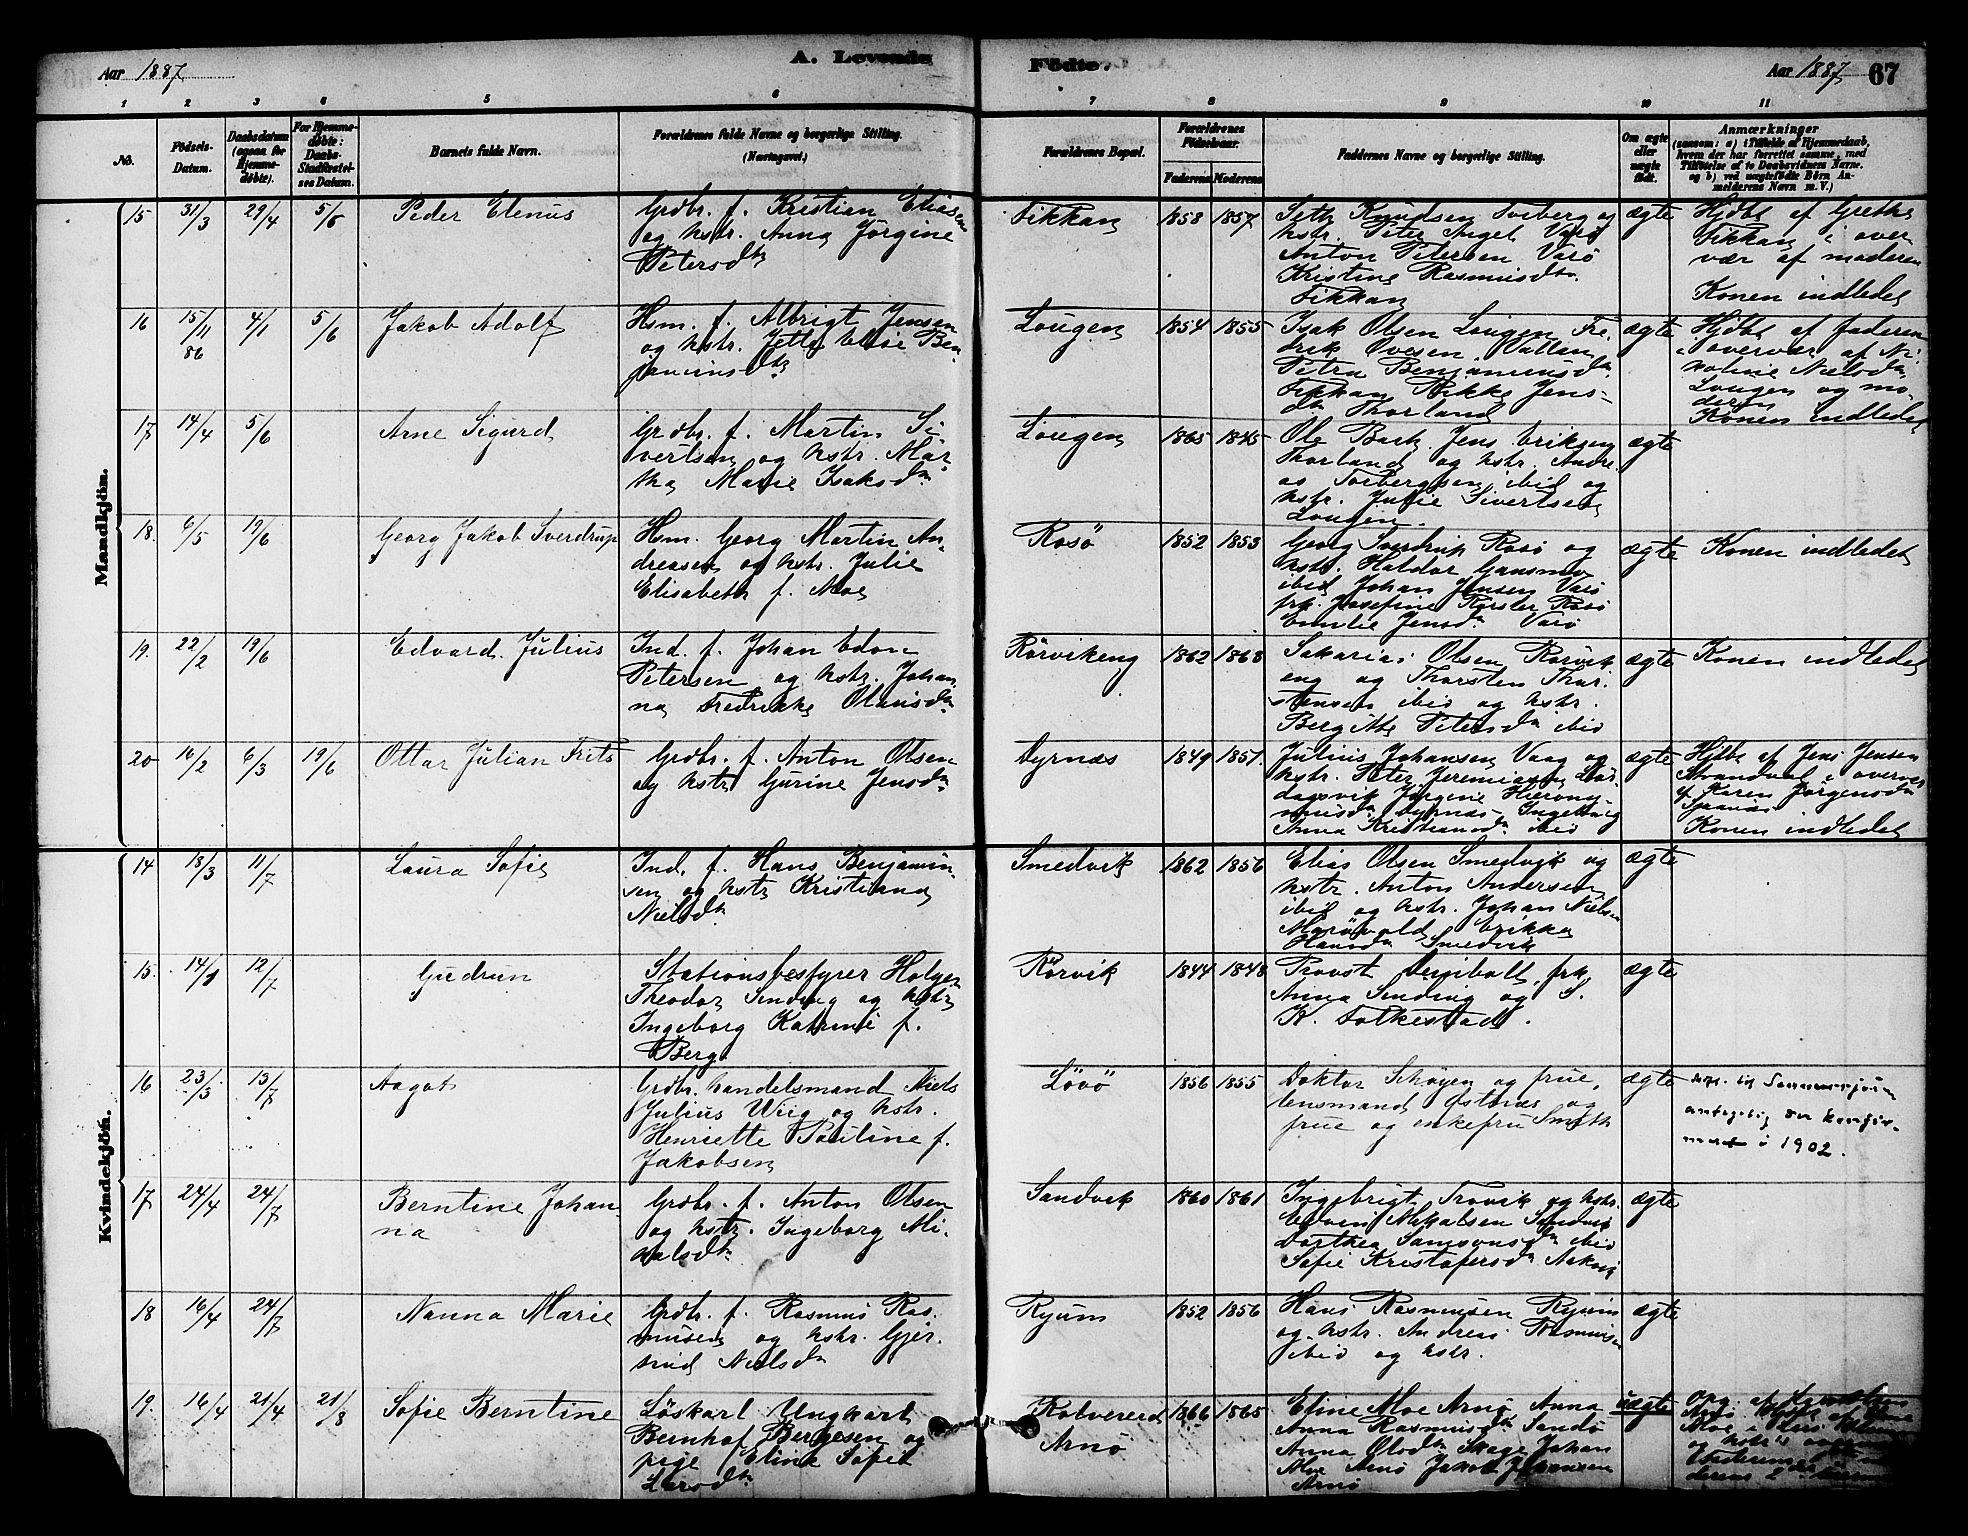 Aar 1887
A. Levende
Födte.
Aar 1887 67
1 2 3 4 5 6 7 8 9 10 11
No.
Födsels-
Datum.
Daabsdatum
(ogsaa for
Hjemme-
döbte).
For Hjemme-
döbte:
Daabs-
Stadfæstel-
ses Datum.
Barnets fulde Navn.
Forældrenes fulde Navne og borgerlige Stilling.
(Næringsvei.)
Forældrenes Bopæl.
Forældrenes
Födselsaar.
Faderens Moderens
Faddernes Navne og borgerlige Stilling.
Om ægte
eller
uægte
födt.
Anmærkninger
(saasom: a) i Tilfælde af Hjemmedaab,
hvem der har forrettet samme, med
Tilföielse af to Daabsvidners Navne,
og b) ved uægtefödte Börn An-
melderens Navn m. V.)
Mandkjön.
15 31/3 29/4 5/6 Peder Elenus
Grdbr. f. Kristian Eliasen
og hstr. Anna Jörgine
Petersdtr
Fikkan 1858 1857
Seth Knudsen Toeberg og
hstr. Peter Angel Varö
Anton Petersen Varö
Kristine Rasmusdtr.
Fikkan
ægte
Hjdbt af Grethe
Fikkan i over
vær af moderen
Konen indledet
16 15/11 86 4/1 5/6 Jakob Adolf
Hsm. f. Albrigt Jensen
og hstr. Jette Elise Ben
jaminsdtr
Lougen 1854 1855
Isak Olsen Lougen Fre
drik Ovesen Vallan
Petra Benjaminsdtr.
Fikkan Rikke Jens-
dtr Thorland
ægte
Hjdbt af faderen
i overvær af Ni
koline Nielsdtr
Lougen og mo
deren
Konen indledet
17 14/4 5/6 Arne Sigurd
Grdbr. f. Martin Si
vertsen og hstr. Mar
tha Marie Isaksdtr
Lougen 1865 1845
Ole Bach Jens Eriksen
Thorland og hstr. Andre
as Torbergsen ibid og
hstr. Julie Sivertsen
Lougen.
ægte
18. 6/5 19/6 Georg Jakob Sverdrup
Hsm. Georg Martin An
dreasen og hstr. Julie
Elisabeth f. Moe
Rosö 1852 1853
Georg Sverdrup Rosö og
hstr. Haldor Gansmo
ibid Johan Jensen Varö
frk. Josefine Rosö
Emilie Jensdtr. Varö
ægte
Konen indledet
19. 22/2 19/6 Edvard Julius
Ind. f. Johan Edon
Petersen og hstr. Johan
na Fredrikke Olausdtr
Rörvikeng 1862 1868
Sakarias Olsen Rörvik
eng og Thorsten Thor
stensen ibid og hstr.
Bergitte Petersdtr ibid
ægte
Konen indledet
20 16/2 6/3 19/6 Ottar Julian Frits
Grdbr. f. Anton Olsen
og hstr Gurine Jensdtr
Dyrnæs 1849 1851.
Julius Johansen Vaag og
hstr. Peter Jeremiassen
Jörgine Hierony
musdtr Dyrnæs Ingeborg
Anna Kristiansdtr ibid
ægte
Hjdbt af Jens Jensen
Strandval i overvær
af Karen Jörgensdtr
Konen indledet
Kvindekjön.
14 18/3 11/7 Laura Sofie
Ind. f. Hans Benjamin
sen og hstr Kristiana
Nielsdtr
Smedvik 1862 1856
Elias Olsen Smedvik og
hstr. Anton Andersen
ibid og hstr. Johan Nielsen
Erikka
Hansdtr Smedvik
ægte
15. 14/1 12/7 Gudrun
Stationsbestyrer Holger
Theodor Sinding og hstr
Ingeborg Katrine f.
Berg
Rörvik 1844 1848
Provst Deinboll, frk.
Anna Sinding og S.
K. Folkestad.
ægte
16 23/3 13/7 Aagot
Grdbr. handelsmand Niels
Julius Wiig og hstr.
Henriette Pauline f.
Jakobsen
Lövö 1856 1855
Doktor Schöyen og frue,
lensmand Östnæs og
frue og enkefru Smith
ægte
antagelig er konfir-
mert i 1902.
17 24/4 24/7 Berntine Johan
na
Grdbr. f. Anton Olsen
og hstr. Ingeborg Mi
kalsdtr
Sandvik 1860 1861
Ingebrigt Trovik og hstr.
Edvin Mikalsen Sandvik
Dorthea Samsonsdtr ibid
Sofie Kristofersdtr Aakvik
ægte
18 16/4 24/7 Nanna Marie
Grdbr. f. Rasmus Ras
musen og hstr. Gjer
trud Nielsdtr
Ryum 1852 1856
Hans Rasmusen Ryum
og hstr. Andreas Rasmusen
ibid og hstr.
ægte
19. 16/4 21/4 21/8 Sofie Berntine
Löskarl Ungkarl
Bernhof Bergesen og
pige Eline Sofie
Larsdtr
Kolvereid
Arnö
1866 1865
Eline Moe Arnö Anna
Anna Rasmusdtr Sandö
Anna Olsdtr Johan
Moe Arnö Jakob Johansen
Arnö
uægte